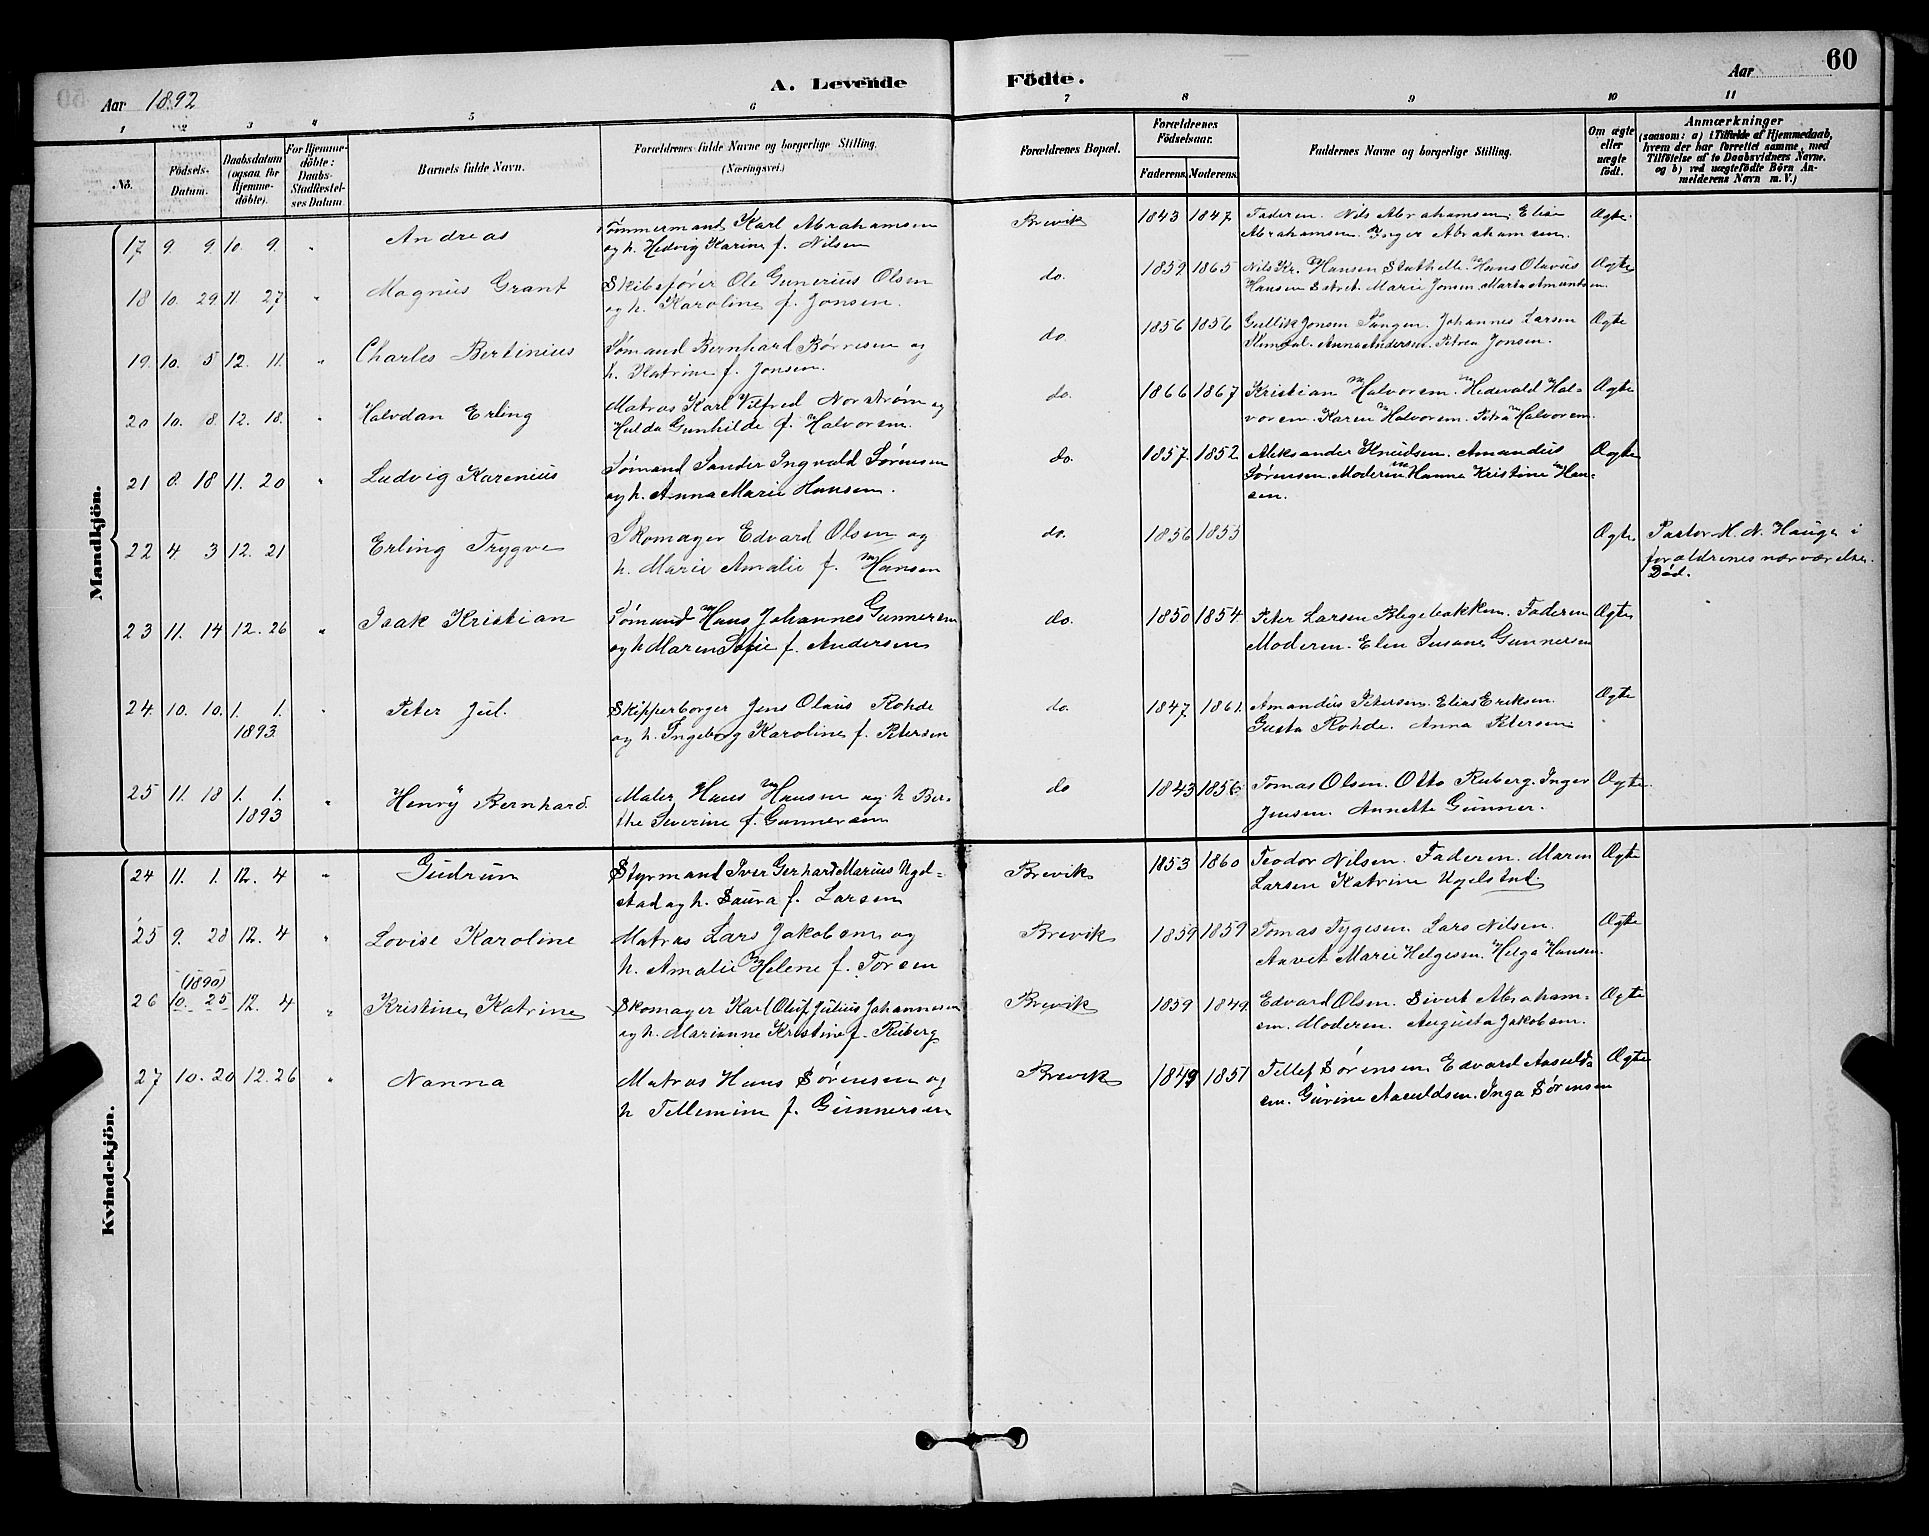 60
Aar 1892
A. Levende Födte.
Aar
1 2 3 4 5 6 7 8 9 10 11
No.
Födsels-Datum.
Daabsdatum (ogsaa for Hjemme-döbte).
For Hjemme-döbte: Daabs-Stadfæstel-ses Datum
Barnets fulde Navn.
Forældrenes fulde Navne og borgerlige Stilling. (Næringsvei.)
Forældrenes Bopæl.
Forældrenes Födselsaar.
Faderens. Moderens.
Faddernes Navne og borgerlige Stilling.
Om ægte eller uægte födt.
Anmærkninger
(saasom: a) i Tilfælde af Hjemmedaab,
hvem der har forrettet samme, med
Tilföielse af to Daabsvidners Navne,
og b) ved uægtefödte Börn An-
melderens Navn m. V.)
Mandkjön.
17 9. 9. 10. 9. " Andreas Tømmermand Karl Abrahamsen Brevik 1843 1847 Faderen. Nils Abrahamsen. Elise Ægte.
og h. Hedvig Karine f. Nilsen Abrahamsen. Inger Abrahamsen.
18 10. 29 11. 27 " Magnus Grant Skibsfører Ole Gunerius Olsen do. 1859 1865 Nils Kr. Hansen Stathelle. Hans Olavus Ægte
og h. Karoline f. Jonsen. Hansen. Marie Jonsen. Marta Amundsen.
19. 10. 5 12. 11. " Charles Bertinius Sømand Bernhard Børresen og do. 1856 1856 Gullik Jonsen Tangen. Johannes Larsen Ægte
h. Katrine f. Jonsen. Anna Andersen. Petrea Jonsen.
20 10. 8. 12. 18. " Halvdan Erling Matros Karl Vilfred Norstrøm og do. 1866 1867 Kristian Halvorsen. Hedevald Hal- Ægte
Hulda Gunhilde f. Halvorsen. vorsen. Karen Halvorsen. Petra Halvorsen.
21 8. 18 11. 20 " Ludvig Karenius Sømand Sander Ingvald Sørensen do. 1857. 1852. Aleksander Knudsen. Amandus Ægte
og h. Anna Marie Hansen. Sørensen. Moderen. Hanna Kristine Han-
sen.
22 4. 3 12. 21 Erling Trygve Skomager Edvard Olsen og do. 1856 1853 Ægte Pastor H. N. Hauge i
h. Marie Amalie f. Hansen forældrenes nærværelse.
Død.
23 11. 14 12. 26 " Isak Kristian Sømand Hans Johannes Gunnersen do. 1850 1854 Peter Larsen Blegebakken. Faderen Ægte
og h Maren Sofie f. Andersen Moderen. Elen Susane Gunnersen
24. 10. 10. 1. 1. " Peter Jul. Skipperborger Jens Olaus Rohde do. 1847. 1861. Amandus Petersen. Elias Eriksen. Ægte
1893. og h. Ingeborg Karoline f. Petersen Gusta Rohde. Anna Petersen.
25 11. 18 1. 1. " Henry Bernhard. Maler Hans Hansen og h Ber- do 1843 1856 Tomas Olsen. Otto Ruberg. Inger Ægte.
1893 the Severine f. Gunnersen Jensen. Annette Gunner.
Kvindekjön.
24 11. 1. 12. 4 " Gudrun Styrmand Iver Gerhard Marius Ugel- Brevik 1853 1860 Teodor Nilsen. Faderen. Maren Ægte
stad og h. Laura f. Larsen Larsen Katrine Ugelstad.
25 9. 28 12. 4 " Lovise Karoline Matros Lars Jakobsen og Brevik 1859 1859 Tomas Tygesen. Lars Nilsen. Ægte
h. Amalie Helene f. Torsen Marie Helgesen. Helga Hansen.
(1890)
26 10. 25 12. 4 " Kristine Katrine Skomager Karl Oluf Julius Johannesen Brevik 1859 1849. Edvard Olsen. Sivert Abraham- Ægte
og h. Marianne Kristine f. Ruberg sen. Moderen. Augusta Jakobsen.
27 10. 20 12. 26 " Nanna Matros Hans Sørensen og Brevik 1849 1851 Tellef Sørensen. Edvard Aasulds- Ægte
h Tellemine f. Gunnersen sen. Gurine Aasuldsen. Inga Sørensen